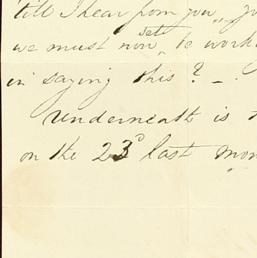 till I hear from you,
we must now set to work
in saying this? -
Underneath is
on the 23d last mon